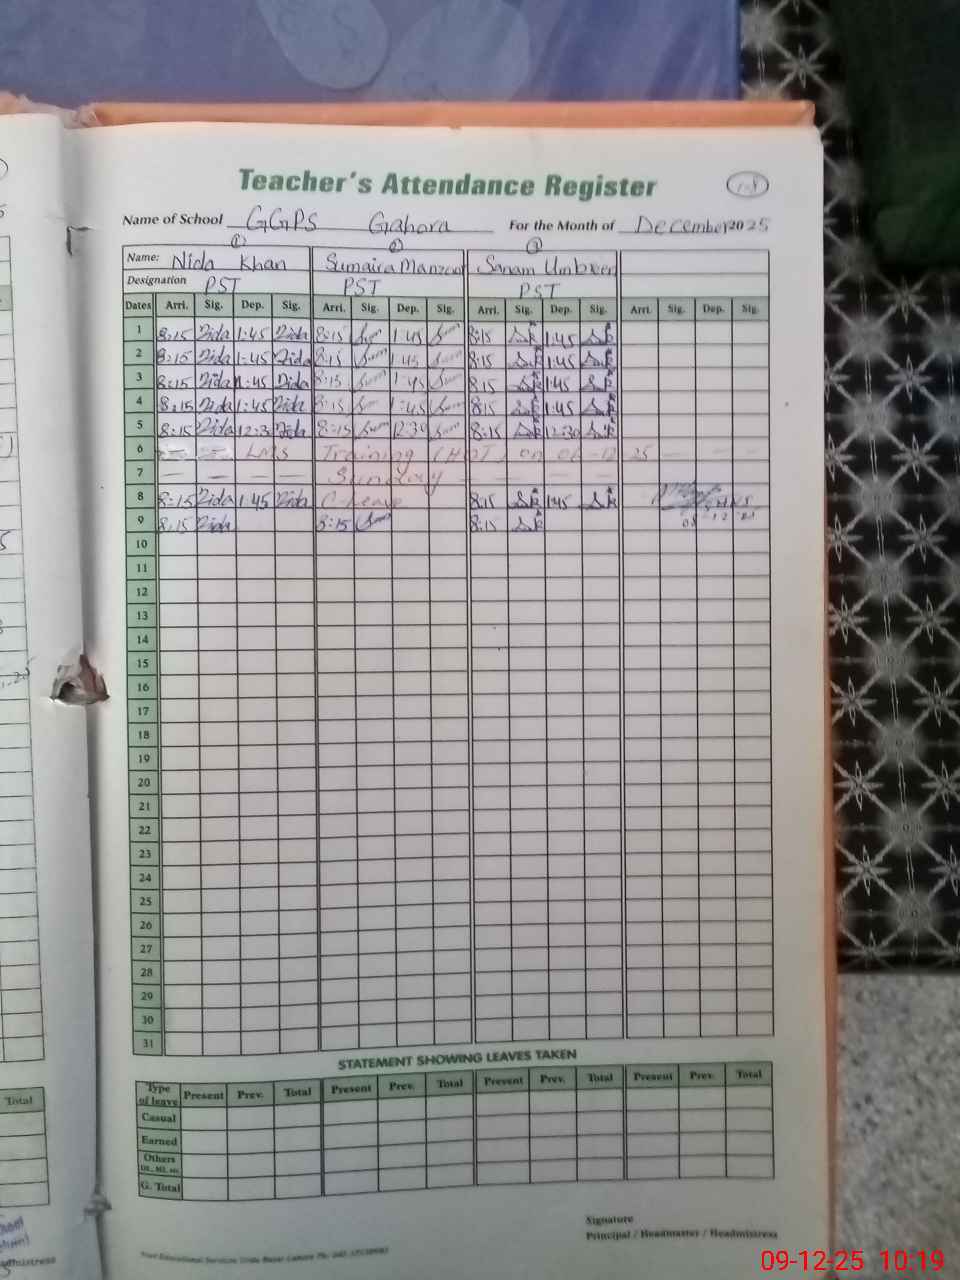 Teacher's Attendance Register
Name of School GGPS Gahora For the Month of December 2025
① ② ③
Name: Nida Khan Sumaira Manzoor Sanam Umbreen
Designation PST PST PST
Dates Arri. Sig. Dep. Sig. Arri. Sig. Dep. Sig. Arri. Sig. Dep. Sig. Arri. Sig. Dep. Sig.
1 8:15 Nida 1:45 Nida 8:15 1:45 8:15 1:45
2 8:15 Nida 1:45 Nida 8:15 1:45 8:15 1:45
3 8:15 Nida 1:45 Nida 8:15 1:45 8:15 1:45
4 8:15 Nida 1:45 Nida 8:15 1:45 8:15 1:45
5 8:15 Nida 12:30 Nida 8:15 12:30 8:15 12:30
6 LMS Training (HOT) on 06-12-25
7 Sunday
8 8:15 Nida 1:45 Nida C-Leave 8:15 1:45
9 8:15 Nida 8:15 8:15
10
11
12
13
14
15
16
17
18
19
20
21
22
23
24
25
26
27
28
29
30
31
STATEMENT SHOWING LEAVES TAKEN
Type of leave Present Prev. Total Present Prev. Total Present Prev. Total Present Prev. Total
Casual
Earned
Others
G. Total
Signature
Principal / Headmaster / Headmistress
Total
09-12-25 10:19